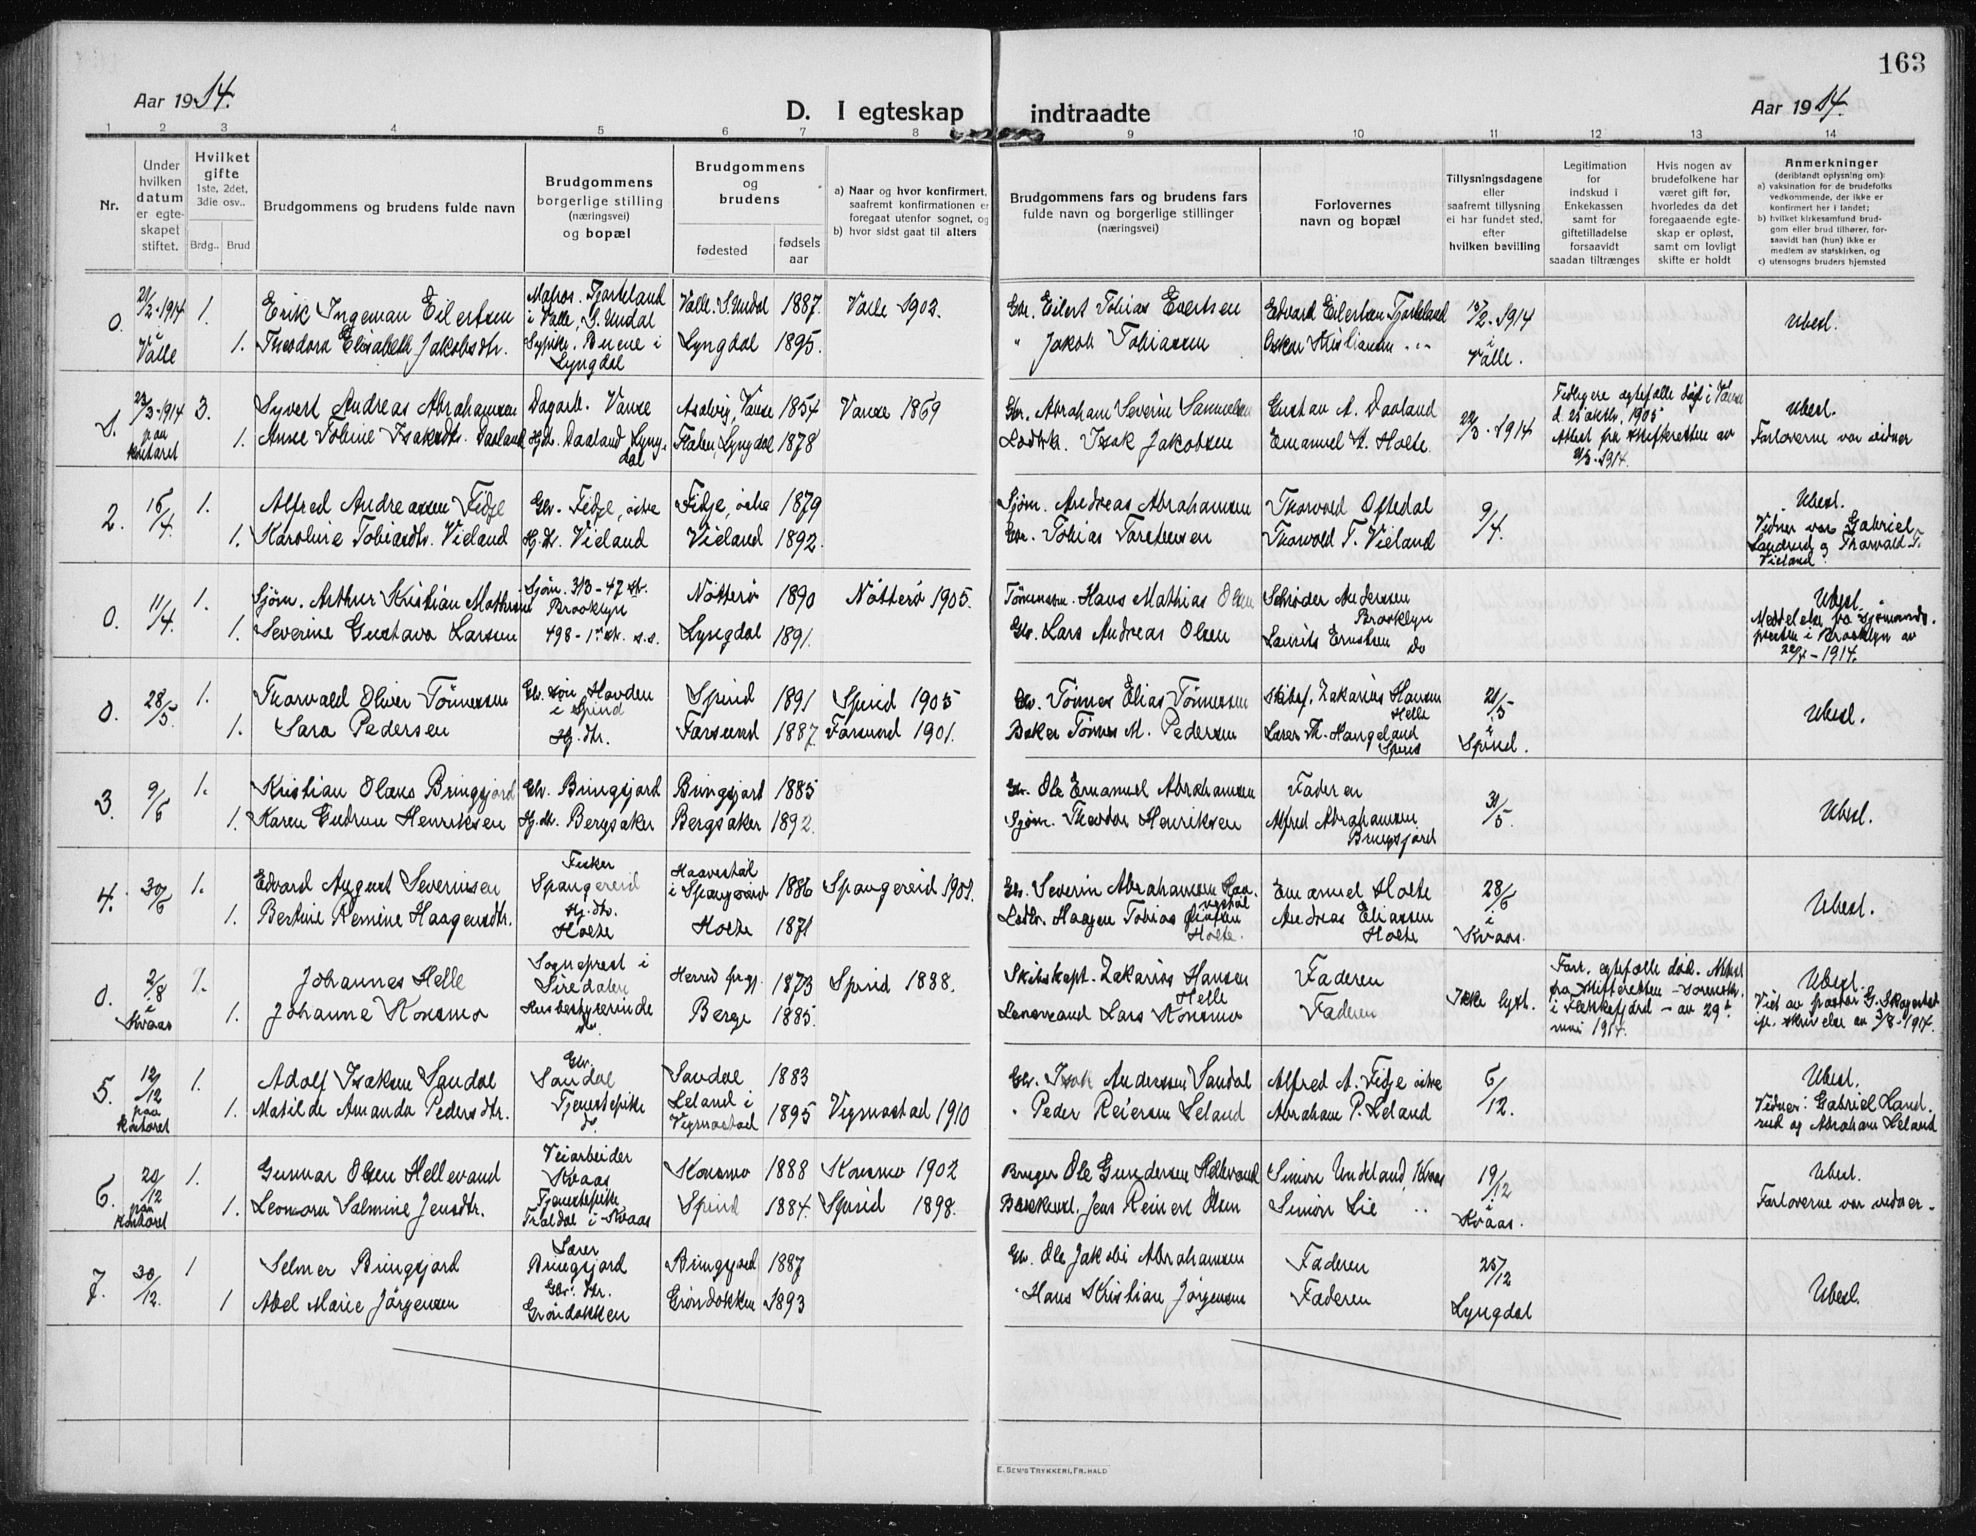 163
Aar 1914.
D. I egteskap indtraadte
Aar 1914.
1 2 3 4 5 6 7 8 9 10 11 12 13 14
Nr.
Under hvilken datum er egteskapet stiftet.
Hvilket gifte 1ste, 2det, 3die osv..
Brdg.. Brud
Brudgommens og brudens fulde navn
Brudgommens borgerlige stilling (næringsvei) og bopæl
Brudgommens og brudens
fødested
fødsels aar
a) Naar og hvor konfirmert, saafremt konfirmationen er foregaat utenfor sognet, og
b) hvor sidst gaat til alters
Brudgommens fars og brudens fars fulde navn og borgerlige stillinger (næringsvei)
Forlovernes navn og bopæl
Tillysningsdagene eller saafremt tillysning ei har fundet sted, efter hvilken bevilling
Legitimation for indskud i Enkekassen samt for giftetilladelse forsaavidt saadan tiltrænges
Hvis nogen av brudefolkene har været gift før, hvorledes da det foregaaende egteskap er opløst, samt om lovligt skifte er holdt
Anmerkninger (deriblandt oplysning om):
a) vaksination for de brudefolks vedkommende, der ikke er konfirmert her i landet;
b) hvilket kirkesamfund brudgom eller brud tilhører, forsaavidt han (hun) ikke er medlem av statskirken, og
c) utensogns bruders hjemsted
0. 21/2-1914 i Valle 1. Erik Ingeman Eilertsen Matros. Fjorteland i Valle, S. Undal Valle S. Undal 1887. Valle 1902. Gbr. Eilert Tobias Evertsen Edvard Eilertsen 15/2-1914 i Valle. Ubesl.
1. Theodora Elisabeth Jakobsdtr. Sypike. Buene i Lyngdal Lyngdal 1895. " Jakob Tobiassen Oskar Kristiansen "
1. 23/3-1914 paa kontoret 3. Syvert Andreas Abrahamsen Dagarb. Vanse Vanse 1854 Vanse 1869 Gbr. Abraham Severin Samuelsen Gustav A. Daaland 22/3-1914 Tidligere egtefælle død i Vanse d. 25 aktbr. 1905 Attest fra skifteretten av 21/3-1914. Ubesl.
1. Anne Tobine Isaksdtr. Daaland Hj.dtr. Daaland Lyngdal Lyngdal 1878 Isak Jakobsen Emanuel K. Holte. Forloverne var vidner
2. 16/4. 1. Alfred Andreassen Fidje Gbr. Fidje, østre Fidje, østre 1879 Sjøm. Andreas Abrahamsen Thorvald Oftedal 9/4. Ubesl.
1. Karoline Tobiasdtr. Vieland Hj.dtr. Vieland Vieland 1892. Gbr. Tobias Tarætsen Thorvald T. Vieland Vidner var Gabriel Landrud og Thorvald T. Vieland.
0. 11/4. 1. Sjøm. Arthur Kristian Mathisen Sjøm. 313-47 str. Brooklyn Nøtterø 1890 Nøtterø 1905. Tømmerm. Hans Mathias Olsen Schrøder Anderssen Brooklyn Ubesl.
1. Severine Gustava Larsen 498-1ste str. s.s. Lyngdal 1891. Gbr. Lars Andreas Olsen Laurits Ernstsen Do Meddelelse fra sjømandspresten i Brooklyn av 22/4-1914.
0. 28/5. 1. Thorvald Oliver Tønnessen Gbr. søn Havden i Spind Spind 1891 Spind 1905 Gbr. Tønnes Elias Tønnessen Skibsf. Zakarias Hansen Helle 21/5 i Spind. Ubesl.
1. Sara Pedersen Hj. dtr. Farsund 1887. Farsund 1901. Baker Tønnes M. Pedersen Lærer Th. Haugeland Spind
3. 9/6 1. Kristian Olaus Bringsjord Gbr. Bringsjord Bringsjord 1885 Gbr. Ole Emanuel Abrahamsen Faderen 31/5. Ubesl.
1. Karen Gudrun Henriksen Hj.dtr. Bergsaker Bergsaker 1892. Sjøm. Theodor Henriksen Alfred Abrahamsen Bringsjord
4. 30/6 1. Edvard August Severinsen Fisker Spangereid Haavestøl i Spangereid 1886 Spangereid 1901. Gbr. Severin Abrahamsen Haavestøl Emanuel Holte 28/6 i Kvaas. Ubesl.
1. Bertine Remine Haagensdtr. Hj.dtr. Holte Holte 1871 Haagen Tobias Holte. Andreas Eliassen Holte
0. 2/8 i Kvaas 1. Johannes Helle Sogneprest i Siredalen Herred 1873 Spind 1888. Skibskapt. Zakarias Hansen Helle Faderen Ikke lyst. Forr. egtefælle død. Attest fra skifteretten - Sorenskr. i Flekkefjord - av 29de mai 1914. Ubesl.
1. Johanne Konsmo Husbestyrerinde Berge 1885. Lensmand Lars Konsmo Faderen Viet av pastor G. Skagestad ifl. skrivelse av 3/8-1914.
5. 12/12 paa kontoret 1. Adolf Isaksen Sandal Gbr. Sandal Sandal 1883 Gbr. Isak Anderssen Sandal Alfred A. Fidje østre 6/12. Ubesl.
1. Matilde Amanda Pedersdtr. Tjenestepike Leland i Vigmostad 1895 Vigmostad 1910 " Peder Reiersen Leland Abraham P. Leland Vidner: Gabriel Landrud og Abraham Leland
6. 20/12 paa kontoret 1. Gunnar Olsen Hellevand Veiarbeider Kvaas Konsmo 1888 Konsmo 1902 Bruger Ole Gundersen Hellevand Simon Undeland, Kvaas 19/12 i Kvaas. Ubesl.
1. Leonora Salmine Jensdtr. Tjenestepike Traldal i Kvaas Spind 1884. Spind 1898. Jens Reinert Olsen Simon Lie " Forloverne var vidner.
7. 30/12. 1 Selmer Bringsjord Lærer Bringsjord Bringsjord 1887 Gbr. Ole Jakob Abrahamsen Faderen 25/12 Lyngdal Ubesl.
1 Abel Marie Jørgensen Gbr. dtr. Grøndokken Grøndokken 1893 " Hans Kristian Jørgensen Faderen
E. SEM'S TRYKKERI, FR.HALD